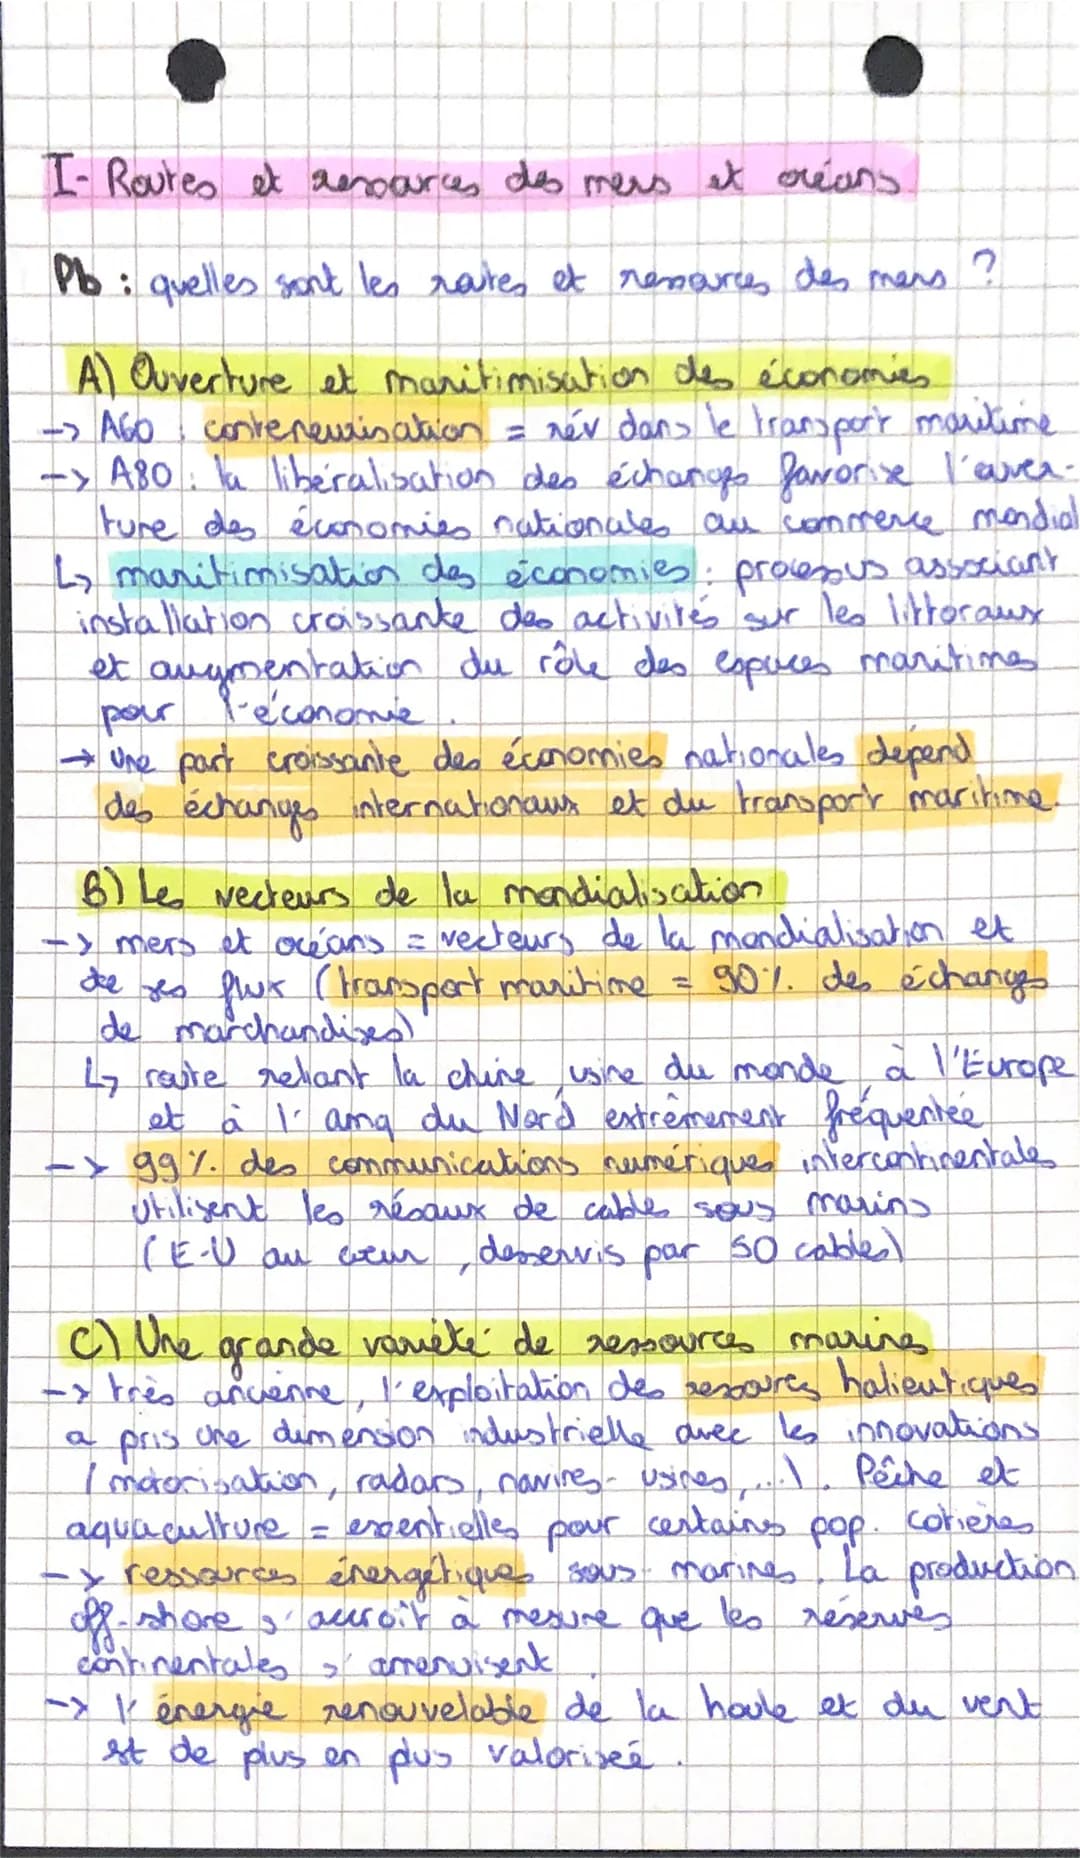 I- Routes et ressources des mers et océans
Pb : quelles sont les routes et ressources des mers ?
A) Ouverture et maritimisation des économies
-> A60 : conteneurisation = rév dans le transport maritime
-> A80 : la libéralisation des échanges favorise l'ouver-
ture des économies nationales au commerce mondial
↳ maritimisation des économies : processus associant
installation croissante des activités sur les littoraux
et augmentation du rôle des espaces maritimes
pour l'économie.
→ une part croissante des économies nationales dépend
des échanges internationaux et du transport maritime.
B) Les vecteurs de la mondialisation
-> mers et océans = vecteurs de la mondialisation et
de ses flux (transport maritime = 90% des échanges
de marchandises)
↳ route reliant la chine, usine du monde, à l'Europe
et à l'amq du Nord extrêmement fréquentée
-> 99% des communications numériques intercontinentales
utilisent les réseaux de cables sous marins
(E-U au coeur, desservis par 50 cables)
C) Une grande variété de ressources marines
-> très ancienne, l'exploitation des ressources halieutiques
a pris une dimension industrielle avec les innovations
(motorisation, radars, navires-usines,...). Pêche et
aquaculture = essentielles pour certains pop. cotières
-> ressources énergétiques sous-marines. La production
off-shore s'accroit à mesure que les réserves
continentales s'amenuisent.
-> l'énergie renouvelable de la houle et du vent
st de plus en plus valorisée.